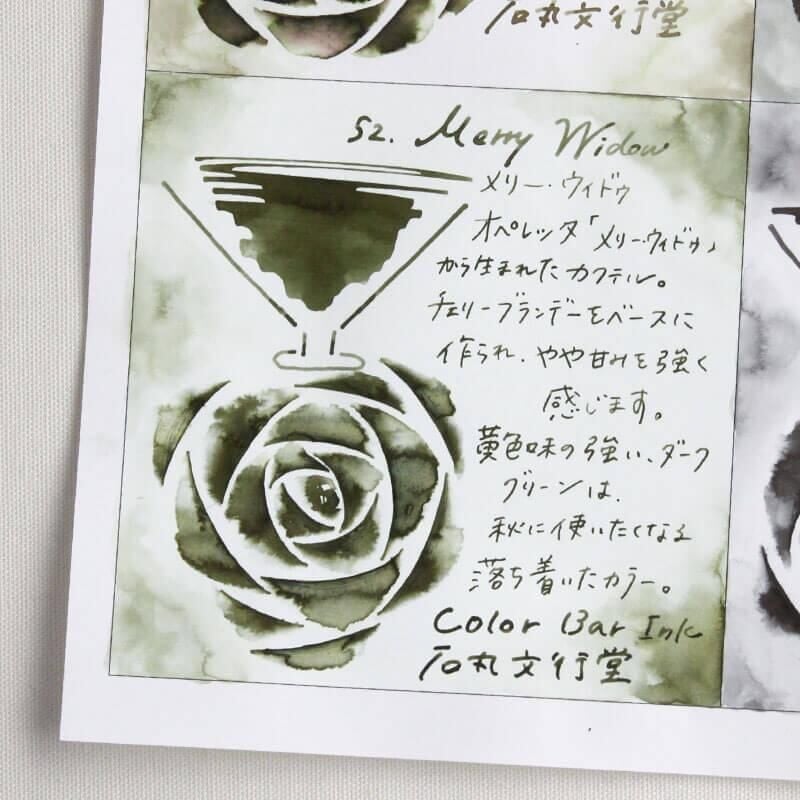 石丸文行堂
52. Merry Widow
メリー・ウィドウ
オペレッタ「メリー・ウィドウ」
から生まれたカクテル。
チェリーブランデーをベースに
作られ、やや甘みを強く
感じます。
黄色味の強い、ダーク
グリーンは、
秋に使いたくなる
落ち着いたカラー。
Color Bar Ink
石丸文行堂